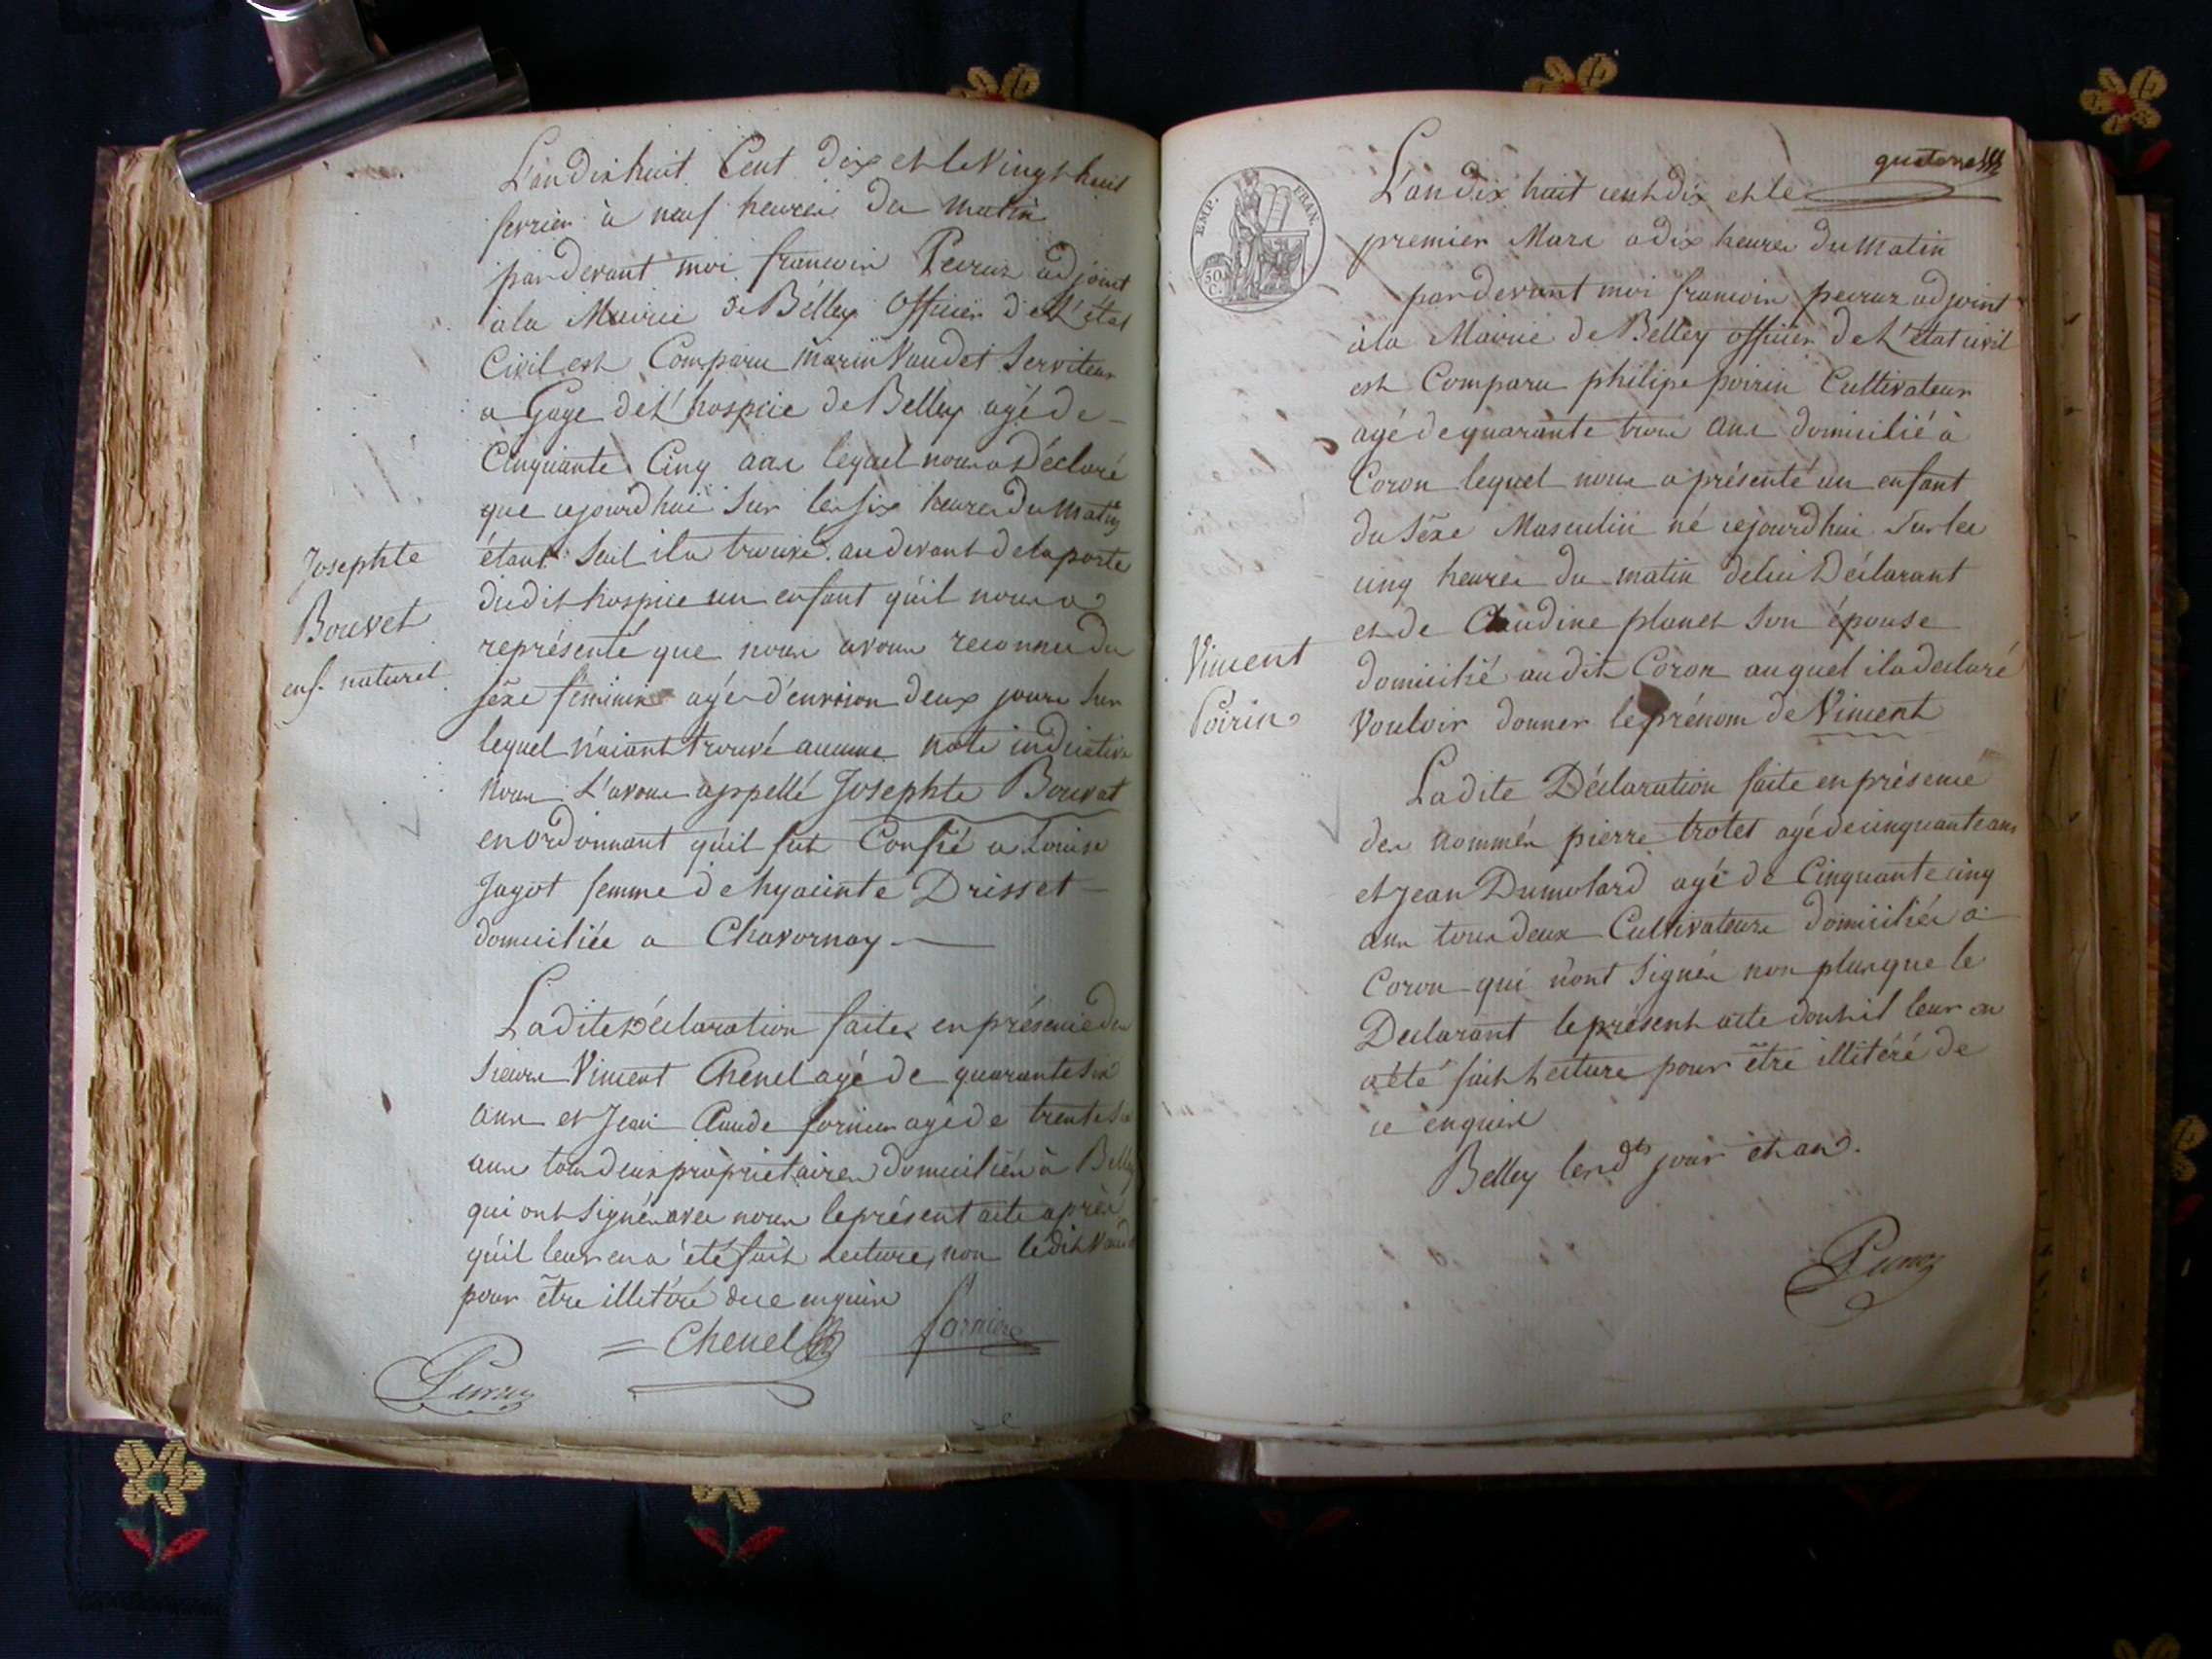 L'an dix huit Cent dix et le Vingt huit
fevrier à neuf heures du matin
par devant moi francois Peyruz adjoint
à la Mairie de Bélley Officier de L'état
Civil est Comparu marin Vaudet Serviteur
a Gage de L'hospice de Belley agé de
Cinquante Cinq ans lequel nous a Déclaré
que cejourd'hui Sur les six heures du Matin
étant Seul il a trouvé au devant de la porte
dudit hospice un enfant qu'il nous a
représenté que nous avons reconnu du
séxe féminin agé d'environ deux jours Sur
lequel n'aiant trouvé aucune note indicative
nous L'avons appellé Josephte Bouvet
en ordonnant qu'il fut Confié a Louise
Jagot femme de hyacinte Drisset
domiciliée a Chavornay
Josephte
Bouvet
enf. naturel
Ladite Déclaration faite en présence des
sieurs Vincent Chenel agé de quarante six
ans et Jean Claude fornier agé de trente
ans tous deux propriétaires domiciliés à Belley
qui ont Signés avec nous le présent acte après
qu'il leur en a été fait Lecture, non ledit Vaudet
pour être illétéré de ce enquis
Chenel fornier
Peyruz
EMP. FRAN.
50
C.
L'an dix huit cent dix et le
premier Mars a dix heures du Matin
par devant moi francois peyruz adjoint
à la Mairie de Belley officier de L'état civil
est Comparu philipe poirin Cultivateur
agé de quarante trois ans domicilié à
Coron lequel nous a présenté un enfant
du Séxe Masculin né cejourd'hui Sur les
cinq heures du matin de lui Déclarant
et de Claudine planet Son épouse
domicilié audit Coron auquel il a declaré
Vouloir donner le prénom de Vincent
Vincent
Poirin
Ladite Déclaration faite en présence
des nommés pierre trotet agé de cinquante ans
et Jean Dumolard agé de Cinquante cinq
ans tous deux Cultivateurs domiciliés à
Coron qui n'ont Signés non plus que le
Declarant le présent acte dont il leur en
a été fait Lecture pour être illétéré de
ce enquis
Belley les dts jour et an.
Peyruz